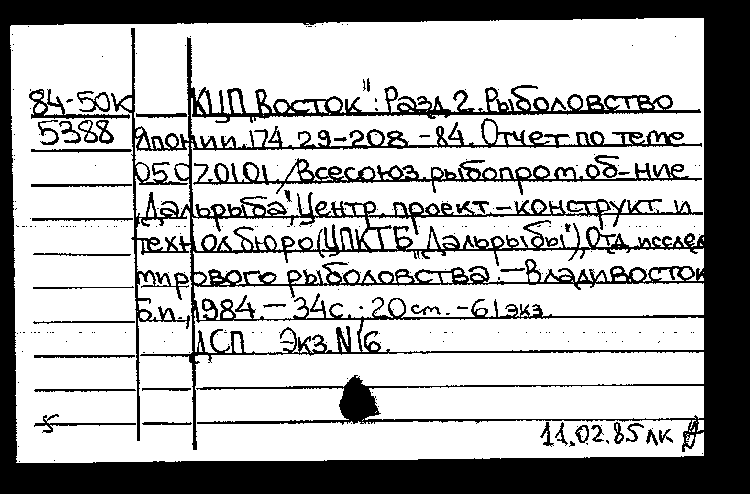 84-50к КЦП „Восток": Разд. 2. Рыболовство
5388 Японии. 174. 29-208 -84. Отчет по теме
05.07.01.01. /Всесоюз. рыбопром. об-ние
„Дальрыба", Центр. проект.-конструкт. и
технол. бюро (ЦПКТБ „Дальрыбы"), Отд. исслед
мирового рыболовства. — Владивосток
б.и., 1984. — 34с.; 20 ст. - 61 экз.
ДСП. Экз. №6.
5 11.02.85 лк